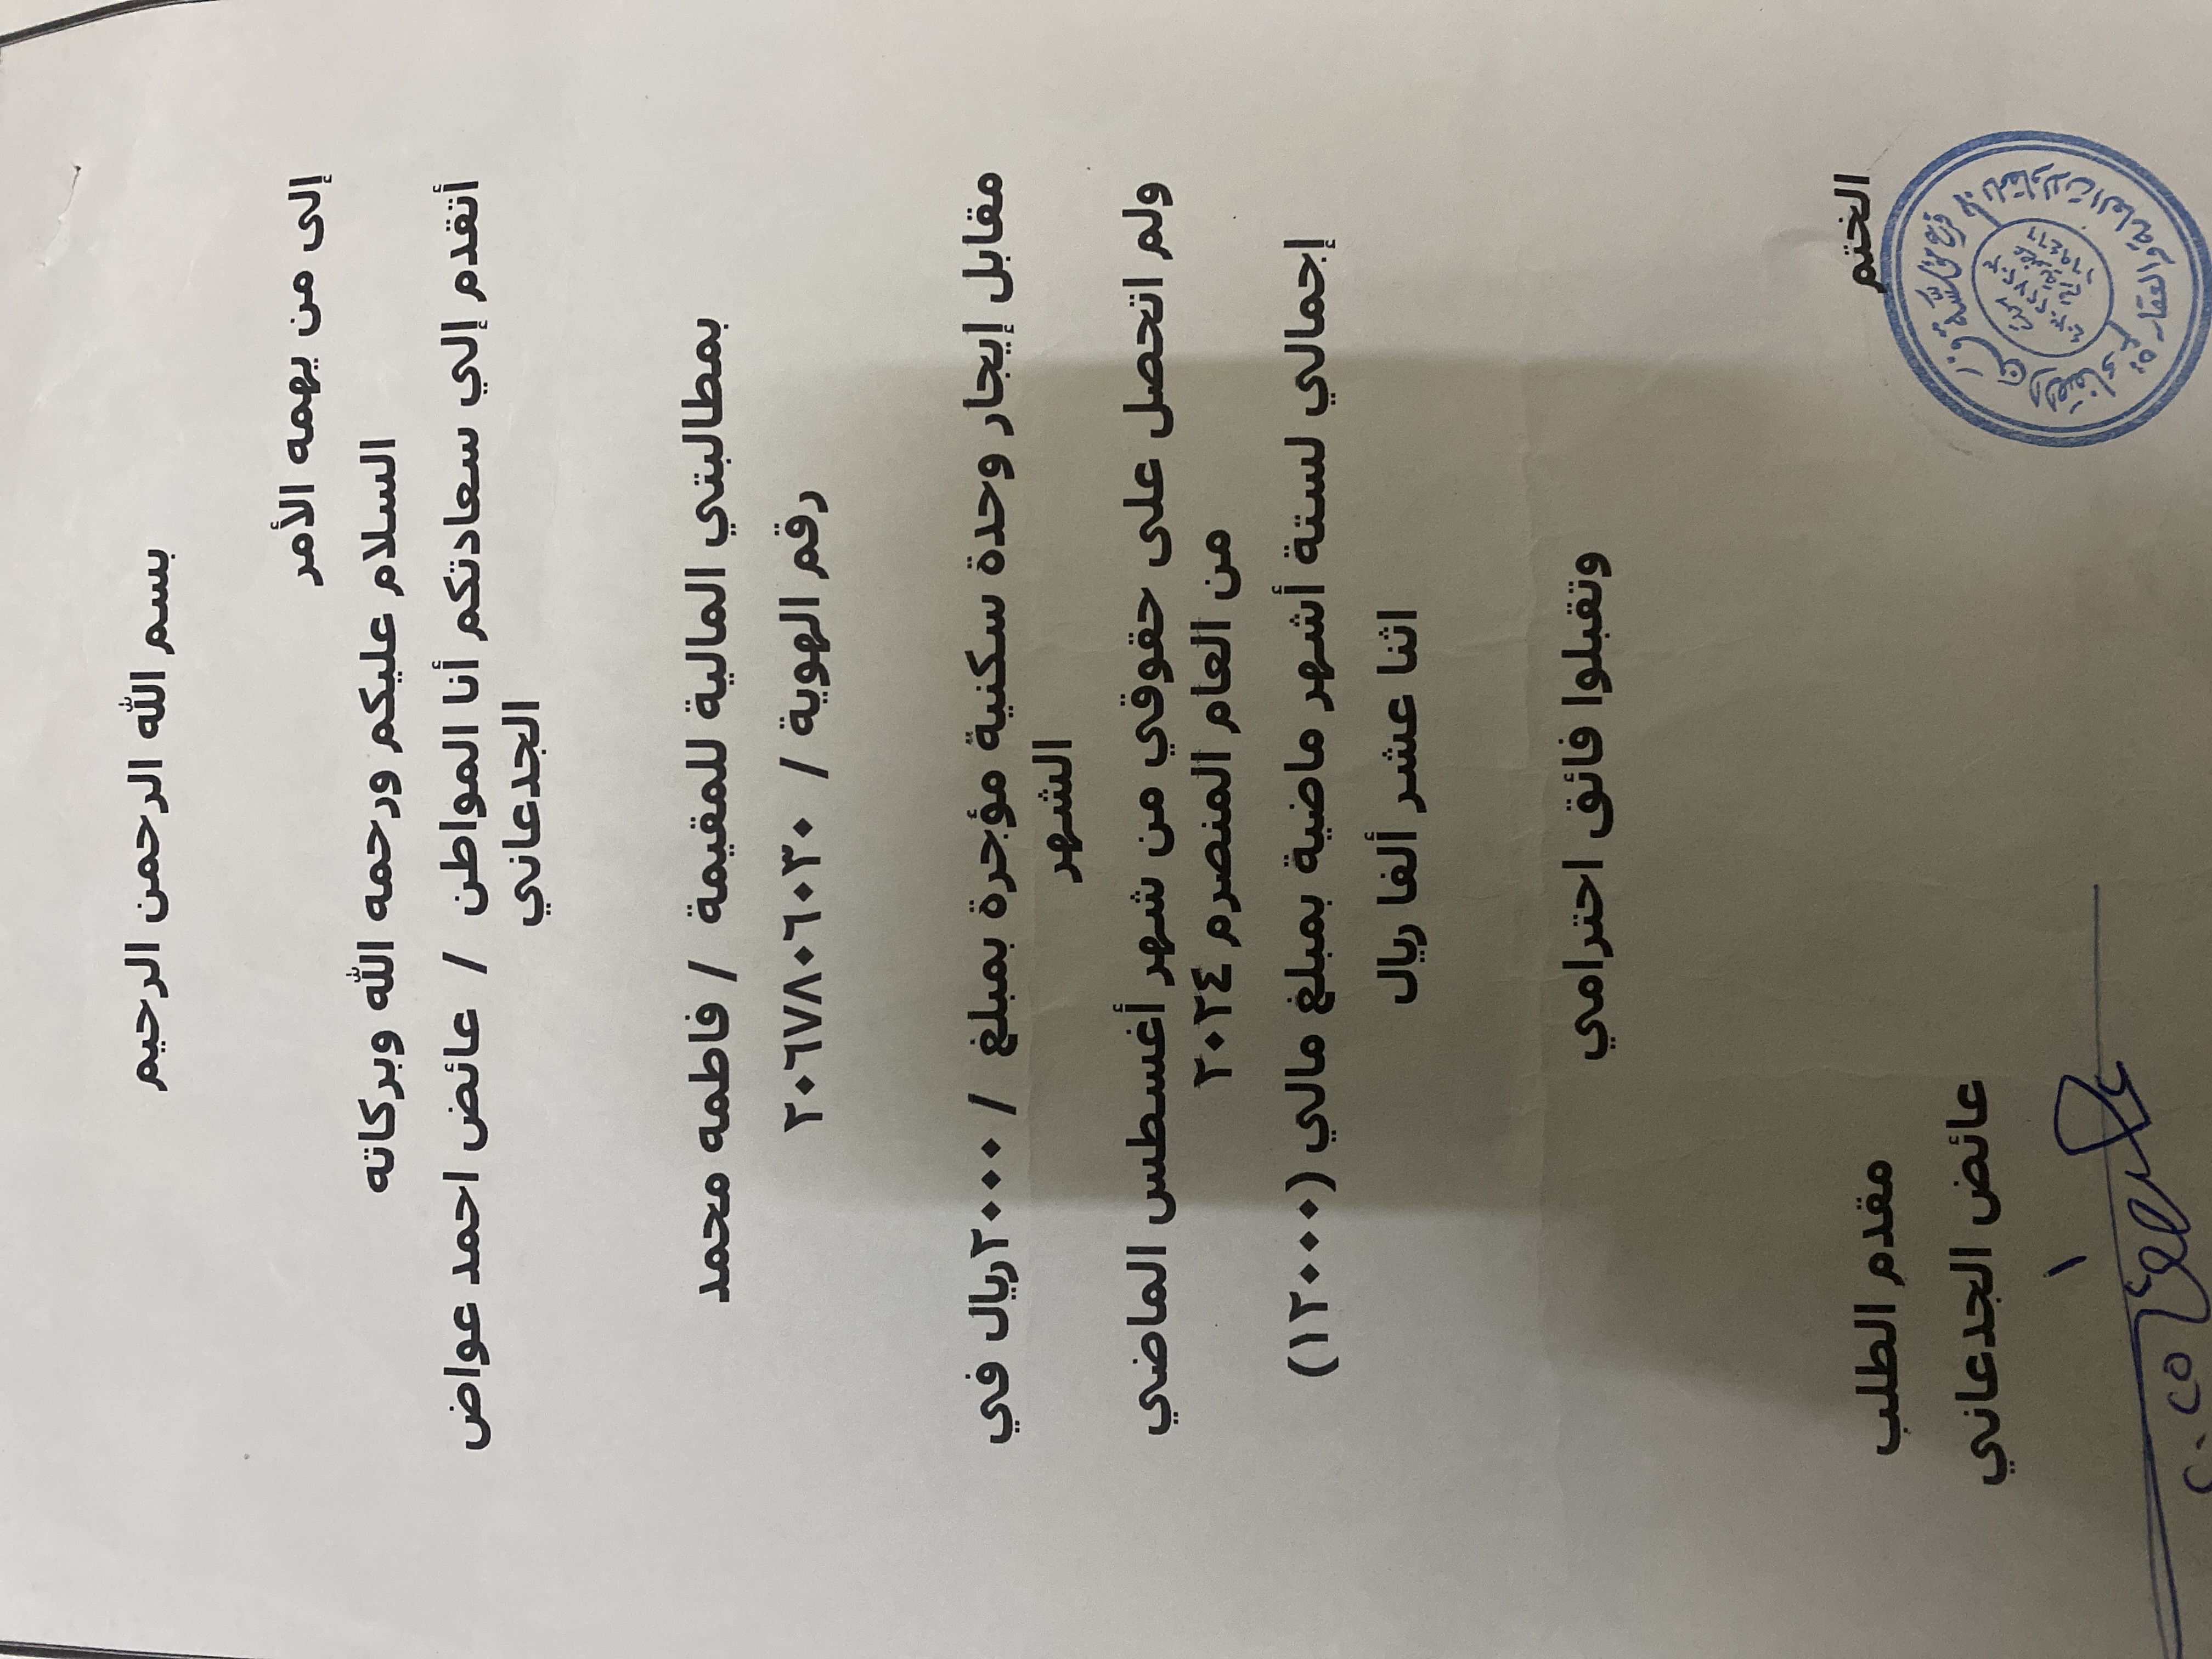 بسم الله الرحمن الرحيم
إلى من يهمه الأمر
السلام عليكم ورحمه الله وبركاته
أتقدم إلي سعادتكم أنا المواطن / عائض احمد عواض
الجدعاني
بمطالبتي المالية للمقيمة / فاطمه محمد
رقم الهوية / ٢٠٦٧٨٠٦٠٣٠
مقابل إيجار وحدة سكنية مؤجرة بمبلغ / ٢٠٠٠ريال في
الشهر
ولم اتحصل على حقوقي من شهر أغسطس الماضي
من العام المنصرم ٢٠٢٤
إجمالي لستة أشهر ماضية بمبلغ مالي (١٢٠٠٠)
اثنا عشر ألفا ريال
وتقبلوا فائق احترامي
الختم
مقدم الطلب
عائض الجدعاني